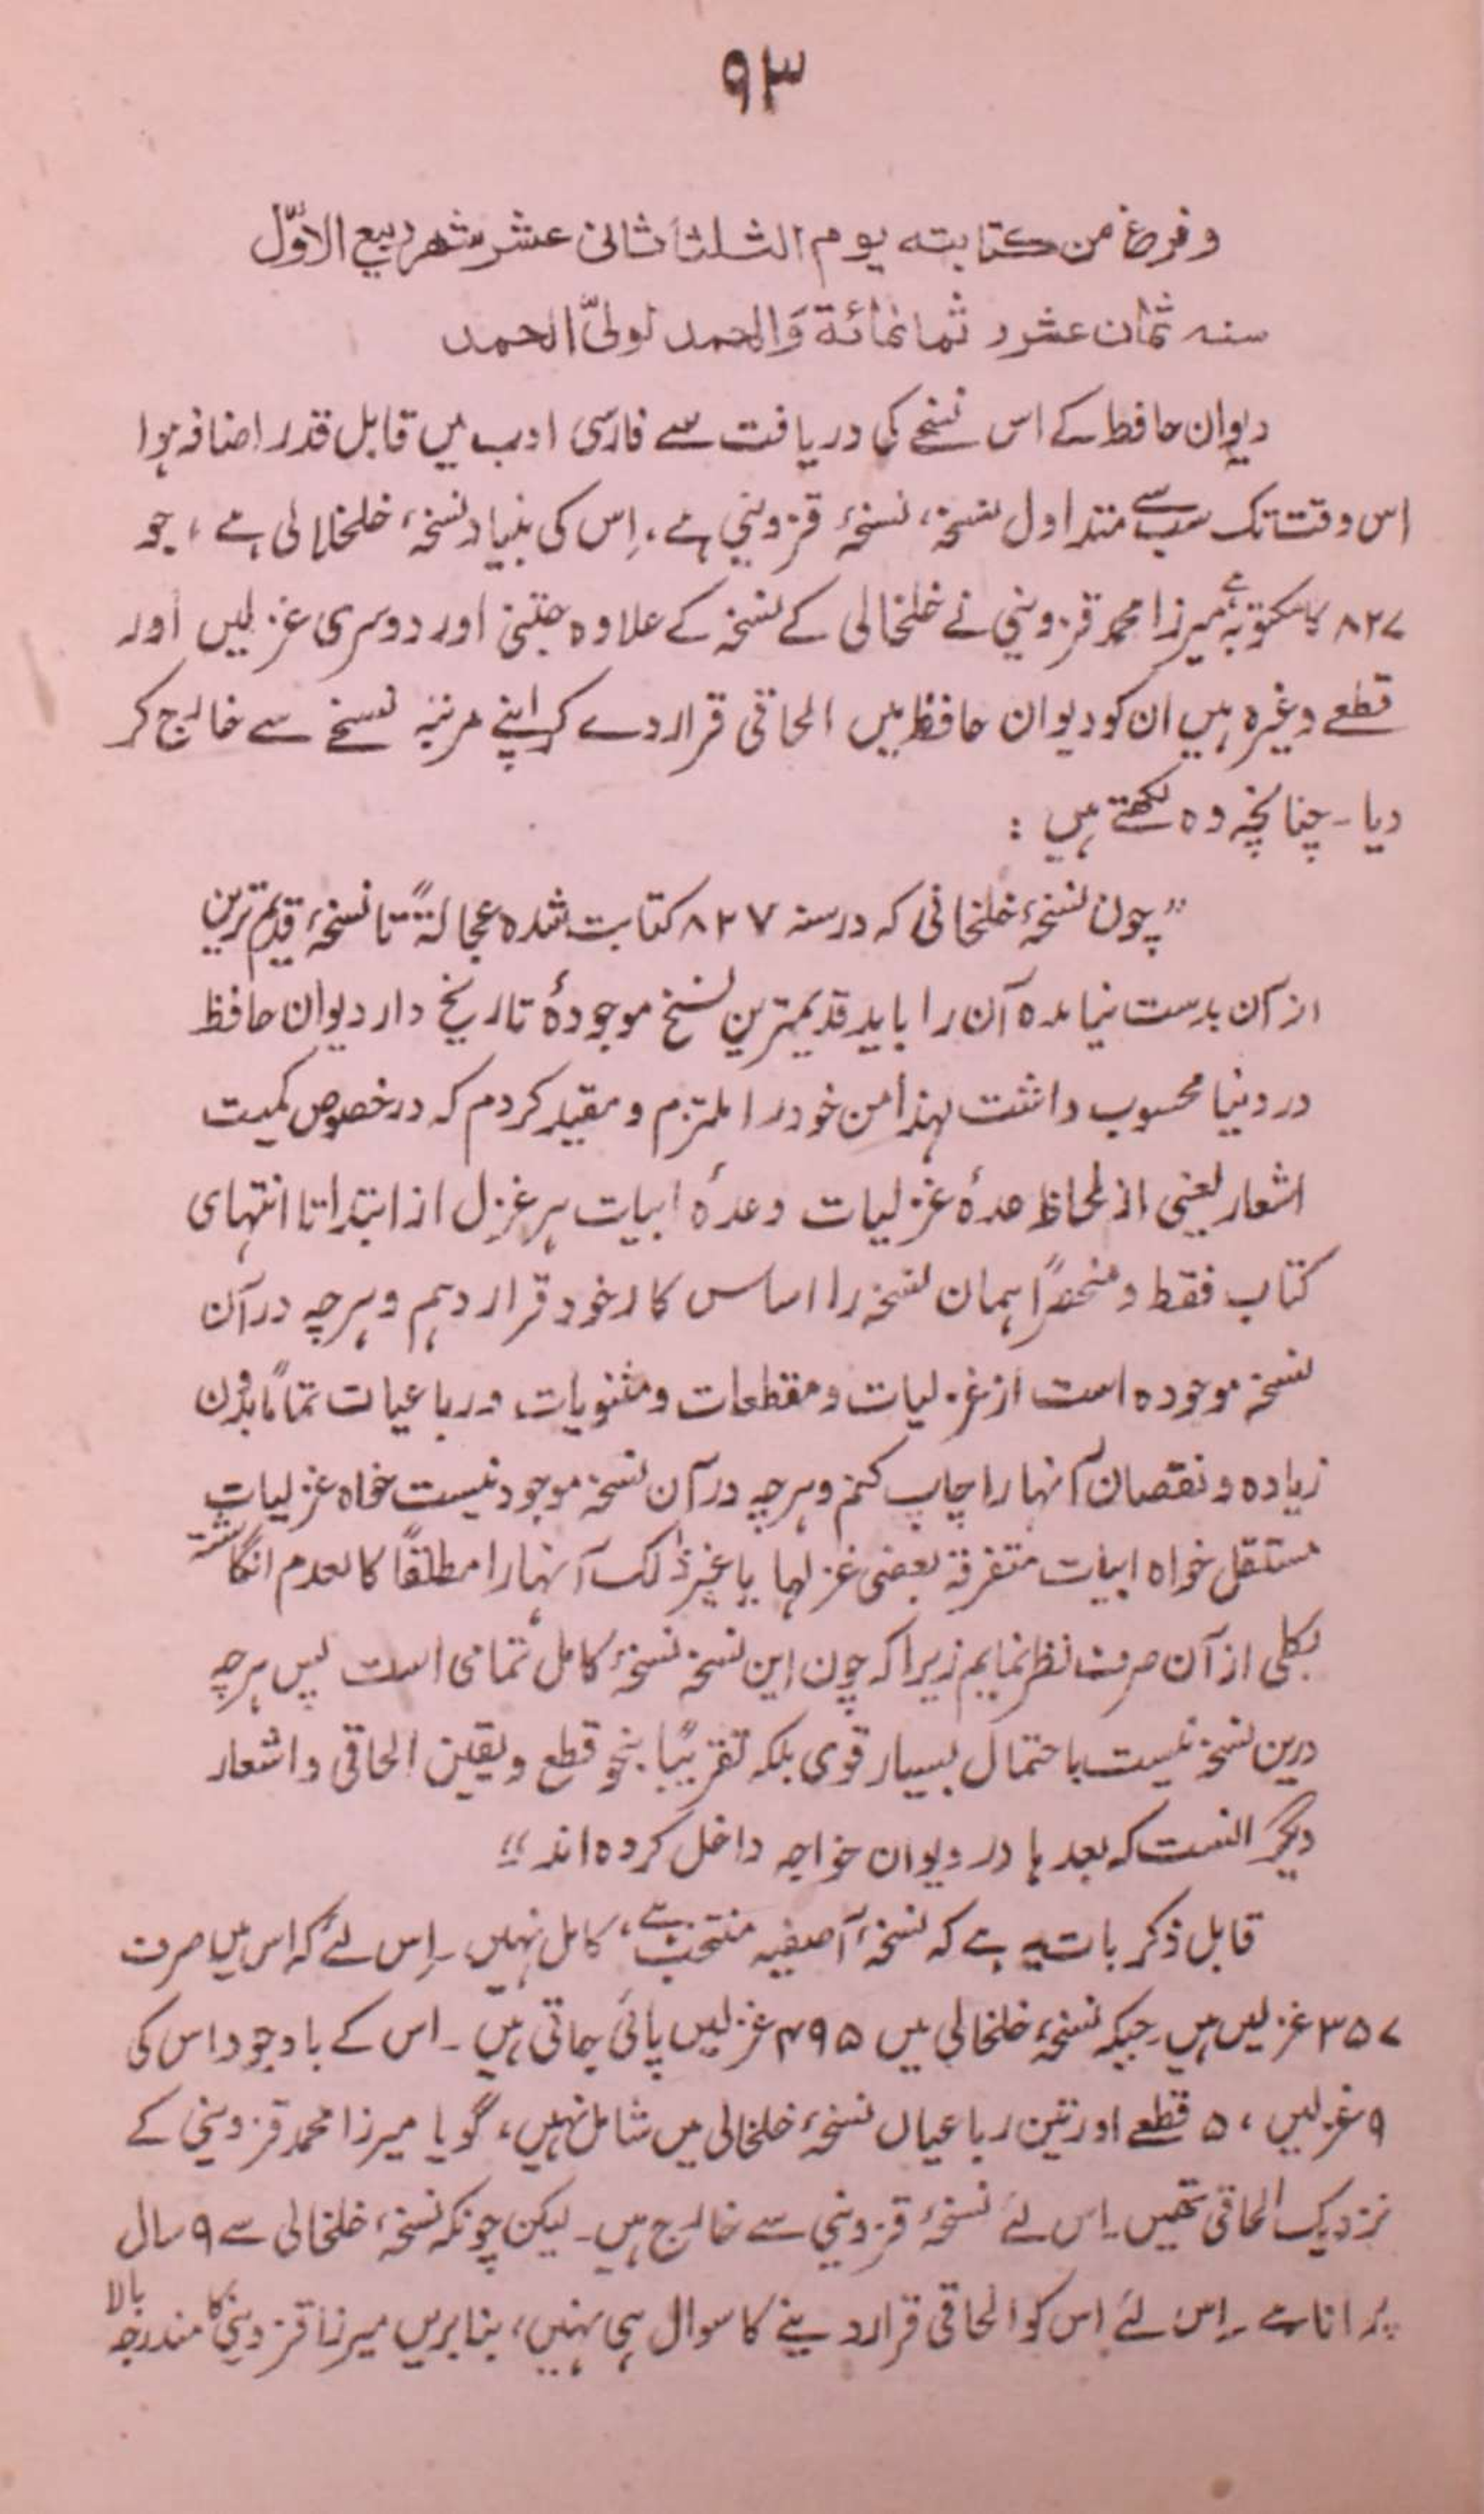 ۹۳
وفرغ من کتابته یوم الثلثا ثانی عشر شهر ربیع الاوّل
سنه ثمان عشر و ثمانمائة وَالحمد لولیّ الحمد
دیوان حافظ کے اس نسخے کی دریافت سے فارسی ادب میں قابل قدر اضافہ ہوا
اس وقت تک سب سے متداول نسخہ، نسخۂ قزوینی ہے، اِس کی بنیاد نسخۂ خلخالی ہے، جو
۸۲۷ کا مکتوبہ ہے میرزا محمد قزوینی نے خلخالی کے نسخہ کے علاوہ جتنی اور دوسری غزلیں اور
قطعے وغیرہ ہیں ان کو دیوان حافظ میں الحاقی قرار دے کر اپنے مرتبہ نسخے سے خارج کر
دیا۔ چنانچہ وہ لکھتے ہیں :
”چون نسخۂ خلخانی کہ در سنہ ۸۲۷ کتابت شدہ عجالۃً تا نسخۂ قدیم ترین
از آن بدست نیامدہ آن را باید قدیمترین نسخ موجودۂ تاریخ دار دیوان حافظ
در دنیا محسوب داشت لہذا من خود را ملتزم و مقید کردم کہ در خصوص کمیت
اشعار یعنی از لحاظ عدۂ غزلیات وعدۂ ابیات ہر غزل از ابتدا تا انتہای
کتاب فقط و منحصراً ہمان نسخہ را اساس کار خود قرار دہم و ہرچہ در آن
نسخہ موجودہ است از غزلیات و مقطعات و مثنویات و رباعیات تماماً بدون
زیادہ و نقصان آنہا را چاپ کنم و ہرچہ در آن نسخہ موجود نیست خواہ غزلیات
مستقل خواہ ابیات متفرقۂ بعضی غزلہا یا غیر ذٰلک آنہا را مطلقاً کالعدم انگاشتہ
بکلی از آن صرف نظر نمایم زیرا کہ چون این نسخہ نسخۂ کامل تمامی است پس ہرچہ
درین نسخہ نیست باحتمال بسیار قوی بلکہ تقریباً بنحو قطع و یقین الحاقی و اشعار
دیگر انست کہ بعدہا در دیوان خواجہ داخل کردہ اند“
قابل ذکر بات یہ ہے کہ نسخۂ آصفیہ منتخب ہے، کامل نہیں۔ اِس لئے کہ اس میں صرف
۳۵۷ غزلیں ہیں جبکہ نسخۂ خلخالی میں ۴۹۵ غزلیں پائی جاتی ہیں۔ اس کے باوجود اس کی
۹ غزلیں، ۵ قطعے اور تین رباعیاں نسخۂ خلخالی میں شامل نہیں، گویا میرزا محمد قزوینی کے
نزدیک الحاقی تھیں۔ اِس لئے نسخۂ قزوینی سے خارج ہیں۔ لیکن چونکہ نسخۂ خلخالی سے ۹ سال
پُرانا ہے۔ اِس لئے اس کو الحاقی قرار دینے کا سوال ہی نہیں، بنا بریں میرزا قزوینی کا مندرجہ بالا